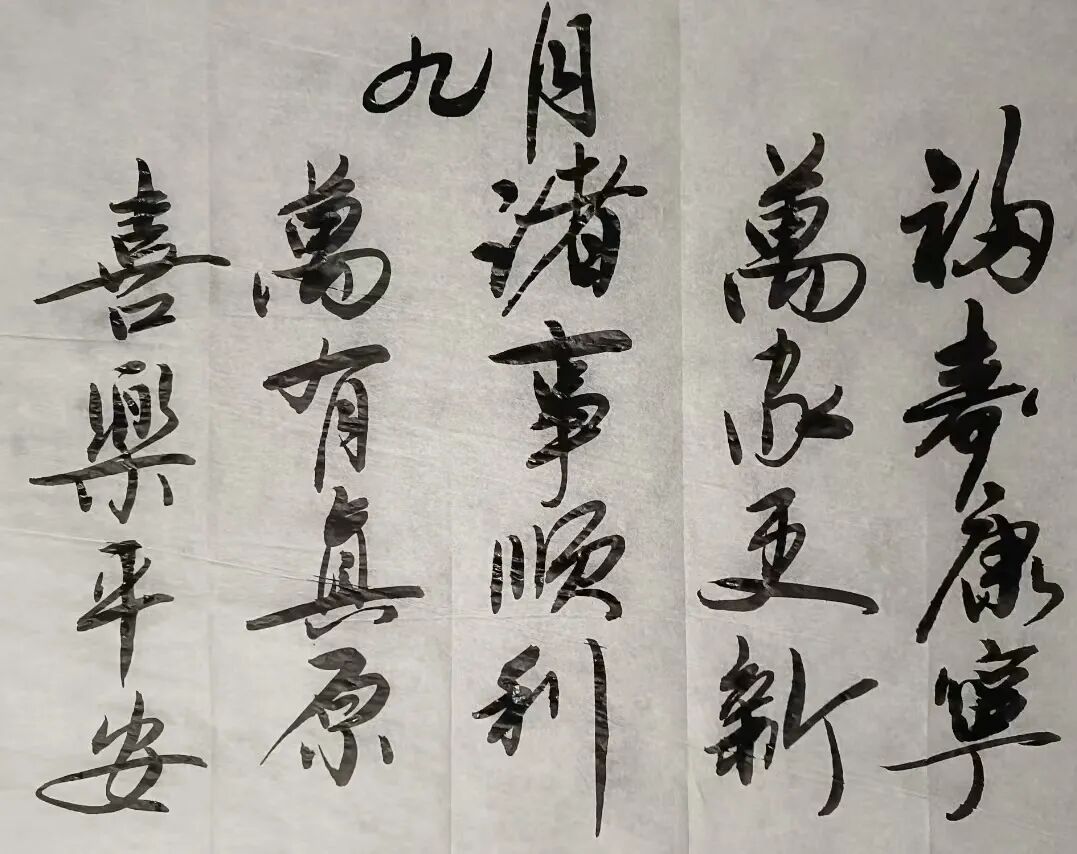 九月
福寿康寧
萬家更新
诸事順利
萬有真原
喜樂平安